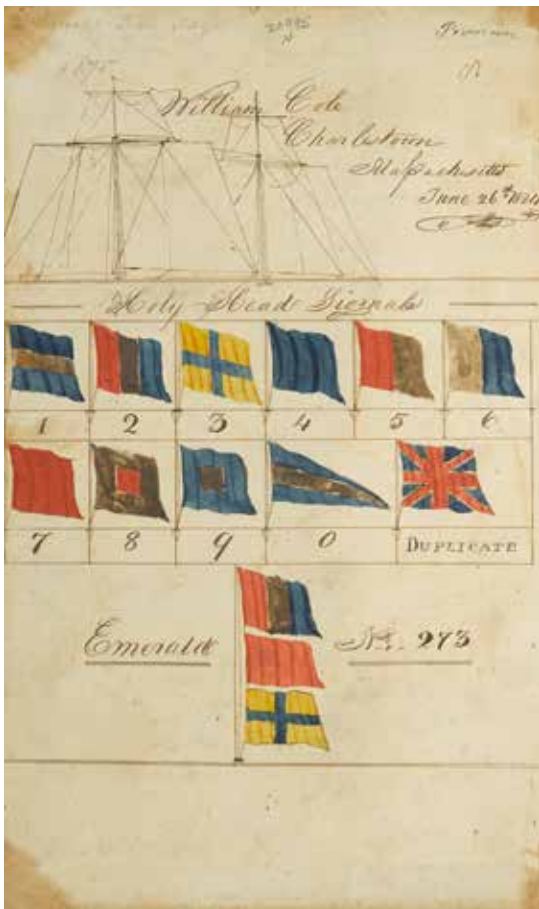 William Cole
Charlestown
Massachusetts
June 26th
Holy Head Signals
1 2 3 4 5 6
7 8 9 0 DUPLICATE
Emerald No. 273